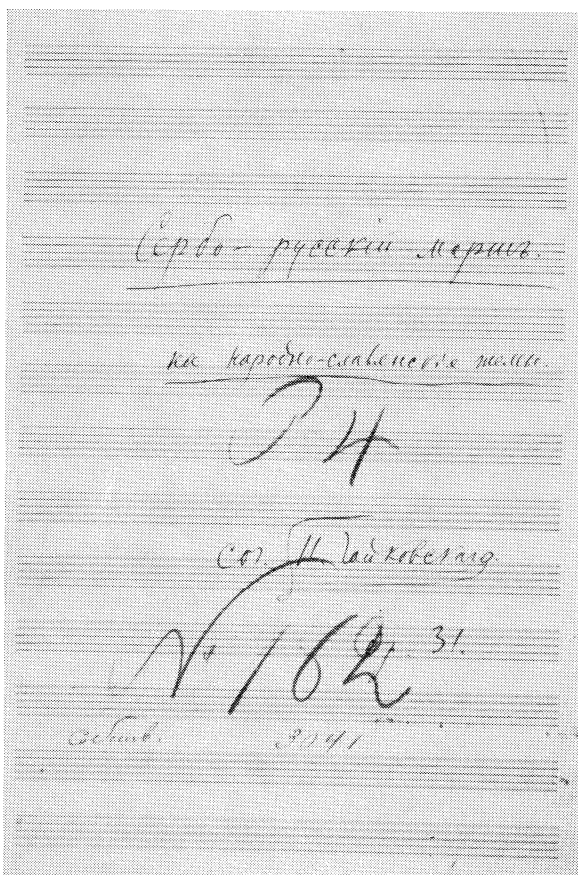 Сербо-русскій маршъ.
на народно-славянскія темы.
соч. П. Чайковскаго.
№ 162
Op. 31.